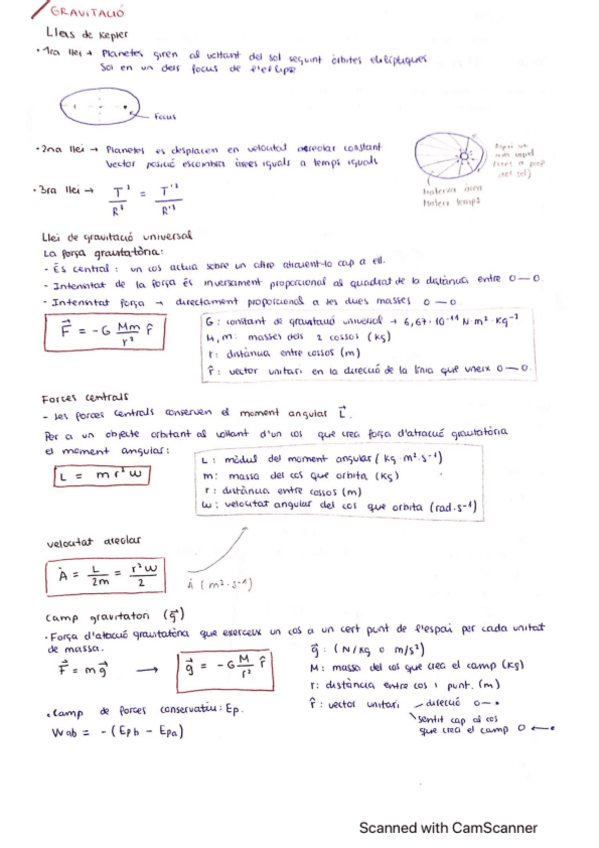 GRAVITACIÓ
Lleis de Kepler
· 1ra llei → Planetes giren al voltant del sol seguint òrbites el·líptiques
Sol en un dels focus de l'el·lipse
Focus
· 2na llei → Planetes es desplacen en velocitat areolar constant
Vector posició escombra àrees iguals a temps iguals
Mateixa àrea
Mateix temps
· 3ra llei → T² / R³ = T'² / R'³
Llei de gravitació universal
La força gravitatòria:
- És central : un cos actua sobre un altre atraient-lo cap a ell.
- Intensitat de la força és inversament proporcional al quadrat de la distància entre o—o.
- Intensitat força → directament proporcional a les dues masses o—o.
F = -G Mm / r² r̂
G : constant de gravitació universal → 6,67·10⁻¹¹ N·m²·Kg⁻²
M, m : masses dels 2 cossos (kg)
r : distància entre cossos (m)
r̂ : vector unitari en la direcció de la línia que uneix o—o.
Forces centrals
- Les forces centrals conserven el moment angular L.
Per a un objecte orbitant al voltant d'un cos que crea força d'atracció gravitatòria
el moment angular:
L = m r² w
L : mòdul del moment angular (kg·m²·s⁻¹)
m : massa del cos que orbita (kg)
r : distància entre cossos (m)
w : velocitat angular del cos que orbita (rad·s⁻¹)
Velocitat areolar
Ȧ = L / 2m = r² w / 2
Ȧ (m²·s⁻¹)
Camp gravitatori (g)
· Força d'atracció gravitatòria que exerceix un cos a un cert punt de l'espai per cada unitat
de massa.
F = m g → g = -G M / r² r̂
g : (N/kg o m/s²)
M : massa del cos que crea el camp (kg)
r : distància entre cos i punt. (m)
r̂ : vector unitari - direcció
sentit cap al cos
que crea el camp
· Camp de forces conservatiu: Ep.
Wab = -(Epb - Epa)
Scanned with CamScanner